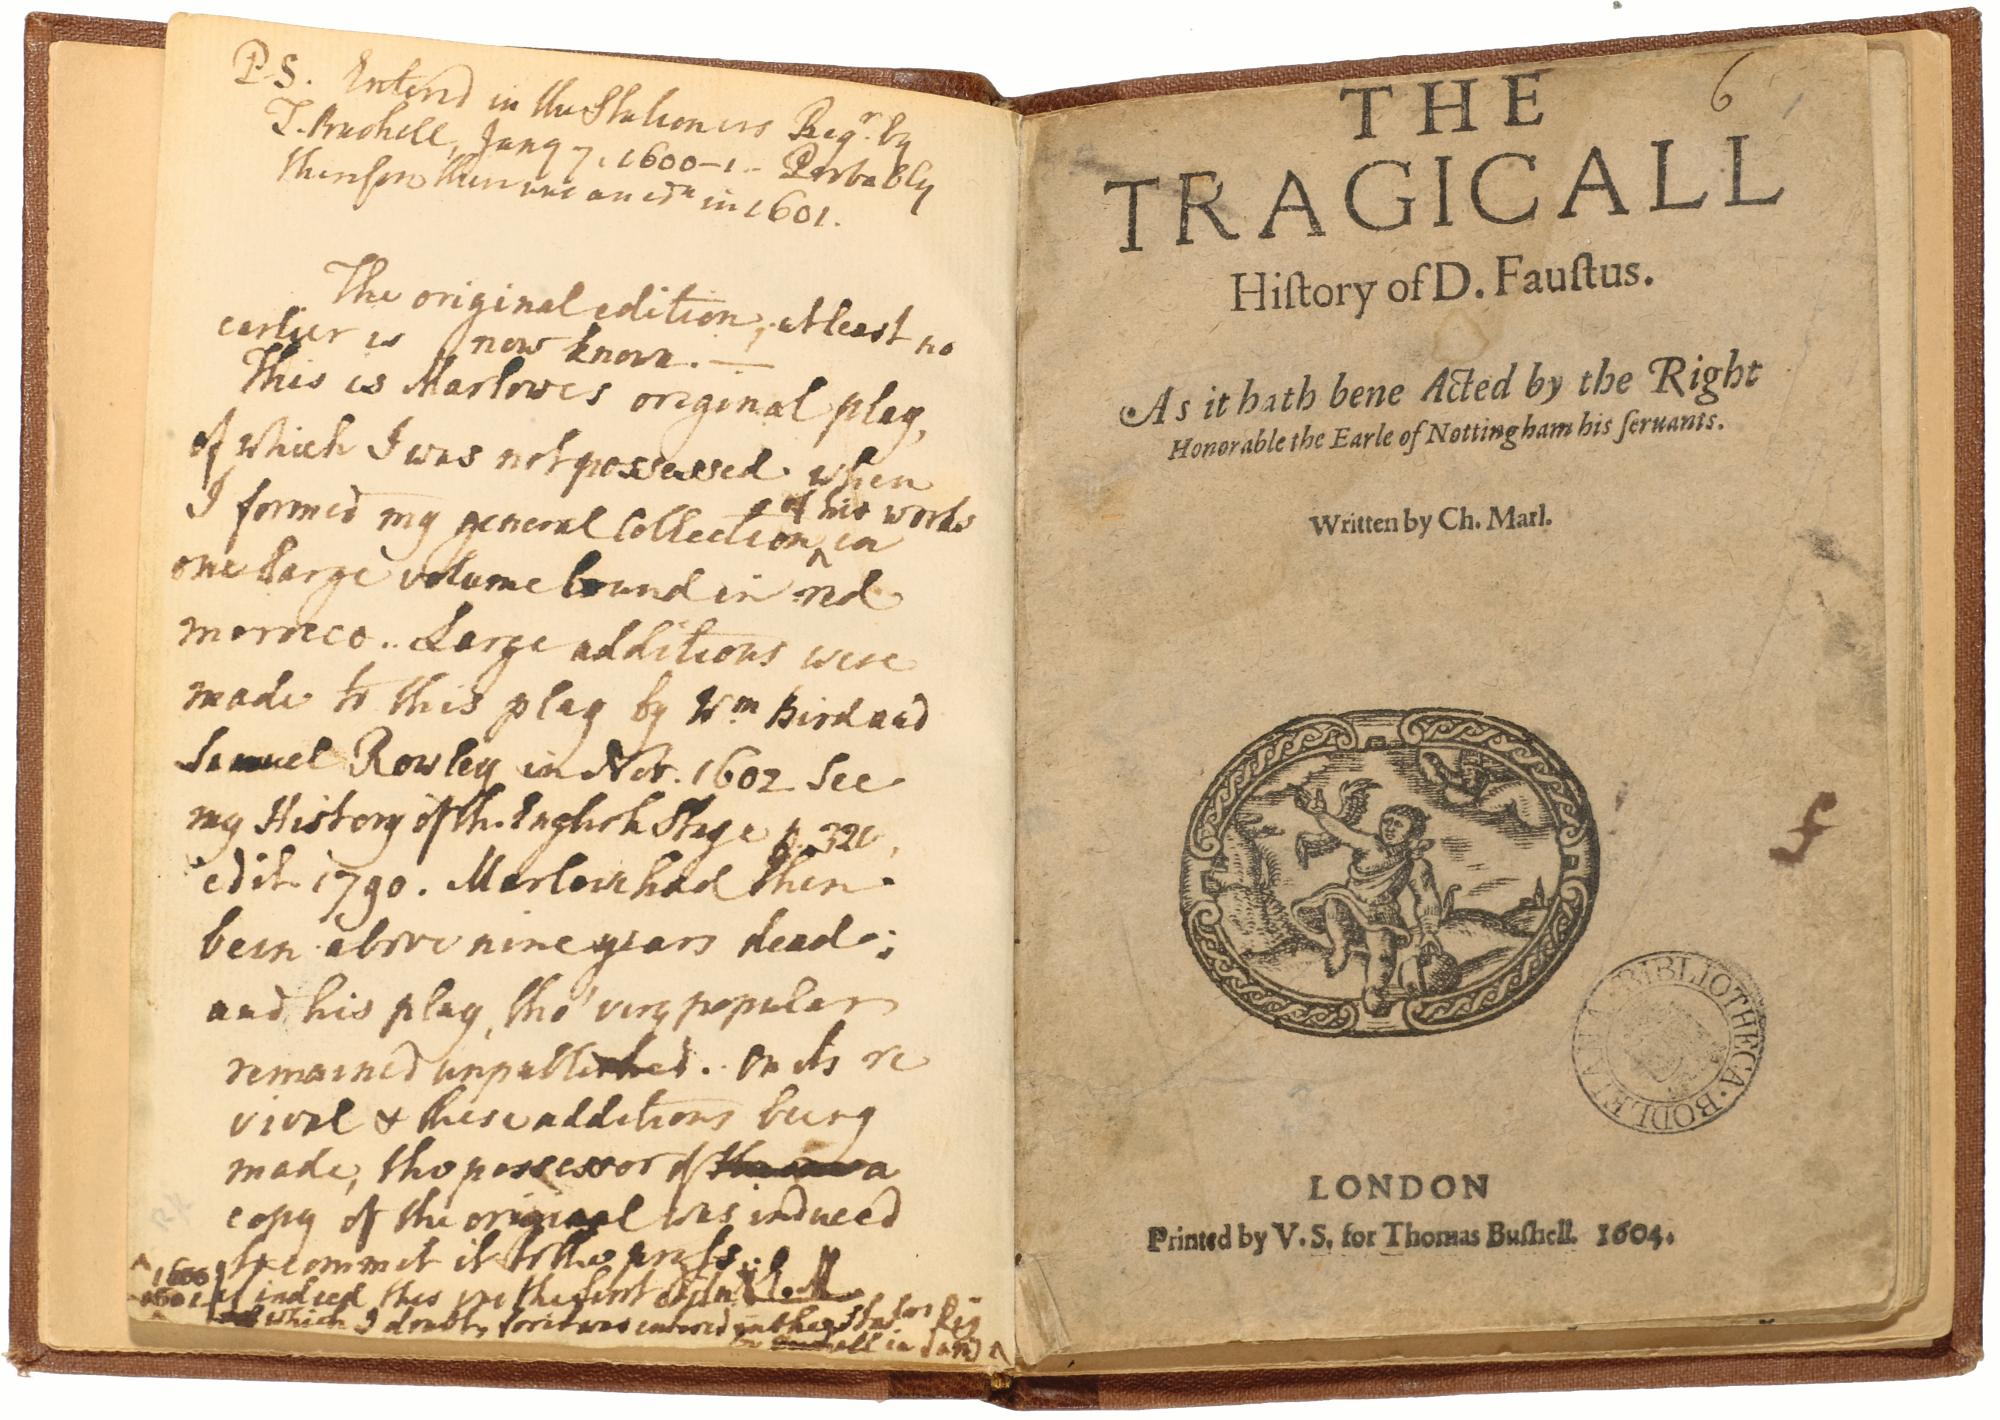 PS. Enterd in the Stationers Regr. by
T. Bushell, Jany 7. 1600-1. Probably
therefore there was an edn in 1601.
The original edition, at least no
earlier is now known. —
This is Marlowes original play,
of which I was not possessed when
I formed my general Collection of his works in
one large volume bound in red
morocco. Large additions were
made to this play by Wm Bird and
Samuel Rowley in Nov. 1602 See
my History of the English Stage p.
edit. 1790. Marlowe had then
been above nine years dead;
and his play, tho' very popular
remained unpublished. On its re
vival & these additions being
made, the possessor of a
copy of the original was induced
to commit it to the press.
if indeed this was the first edn E. M.
which I doubt, for it was entered in the Statrs Reg
in Jany
1600
1601
6
THE
TRAGICALL
Hiſtory of D. Fauſtus.
As it hath bene Acted by the Right
Honorable the Earle of Nottingham his ſeruants.
Written by Ch. Marl.
f
BIBLIOTHECA BODLEIANA
LONDON
Printed by V. S. for Thomas Buſhell. 1604.